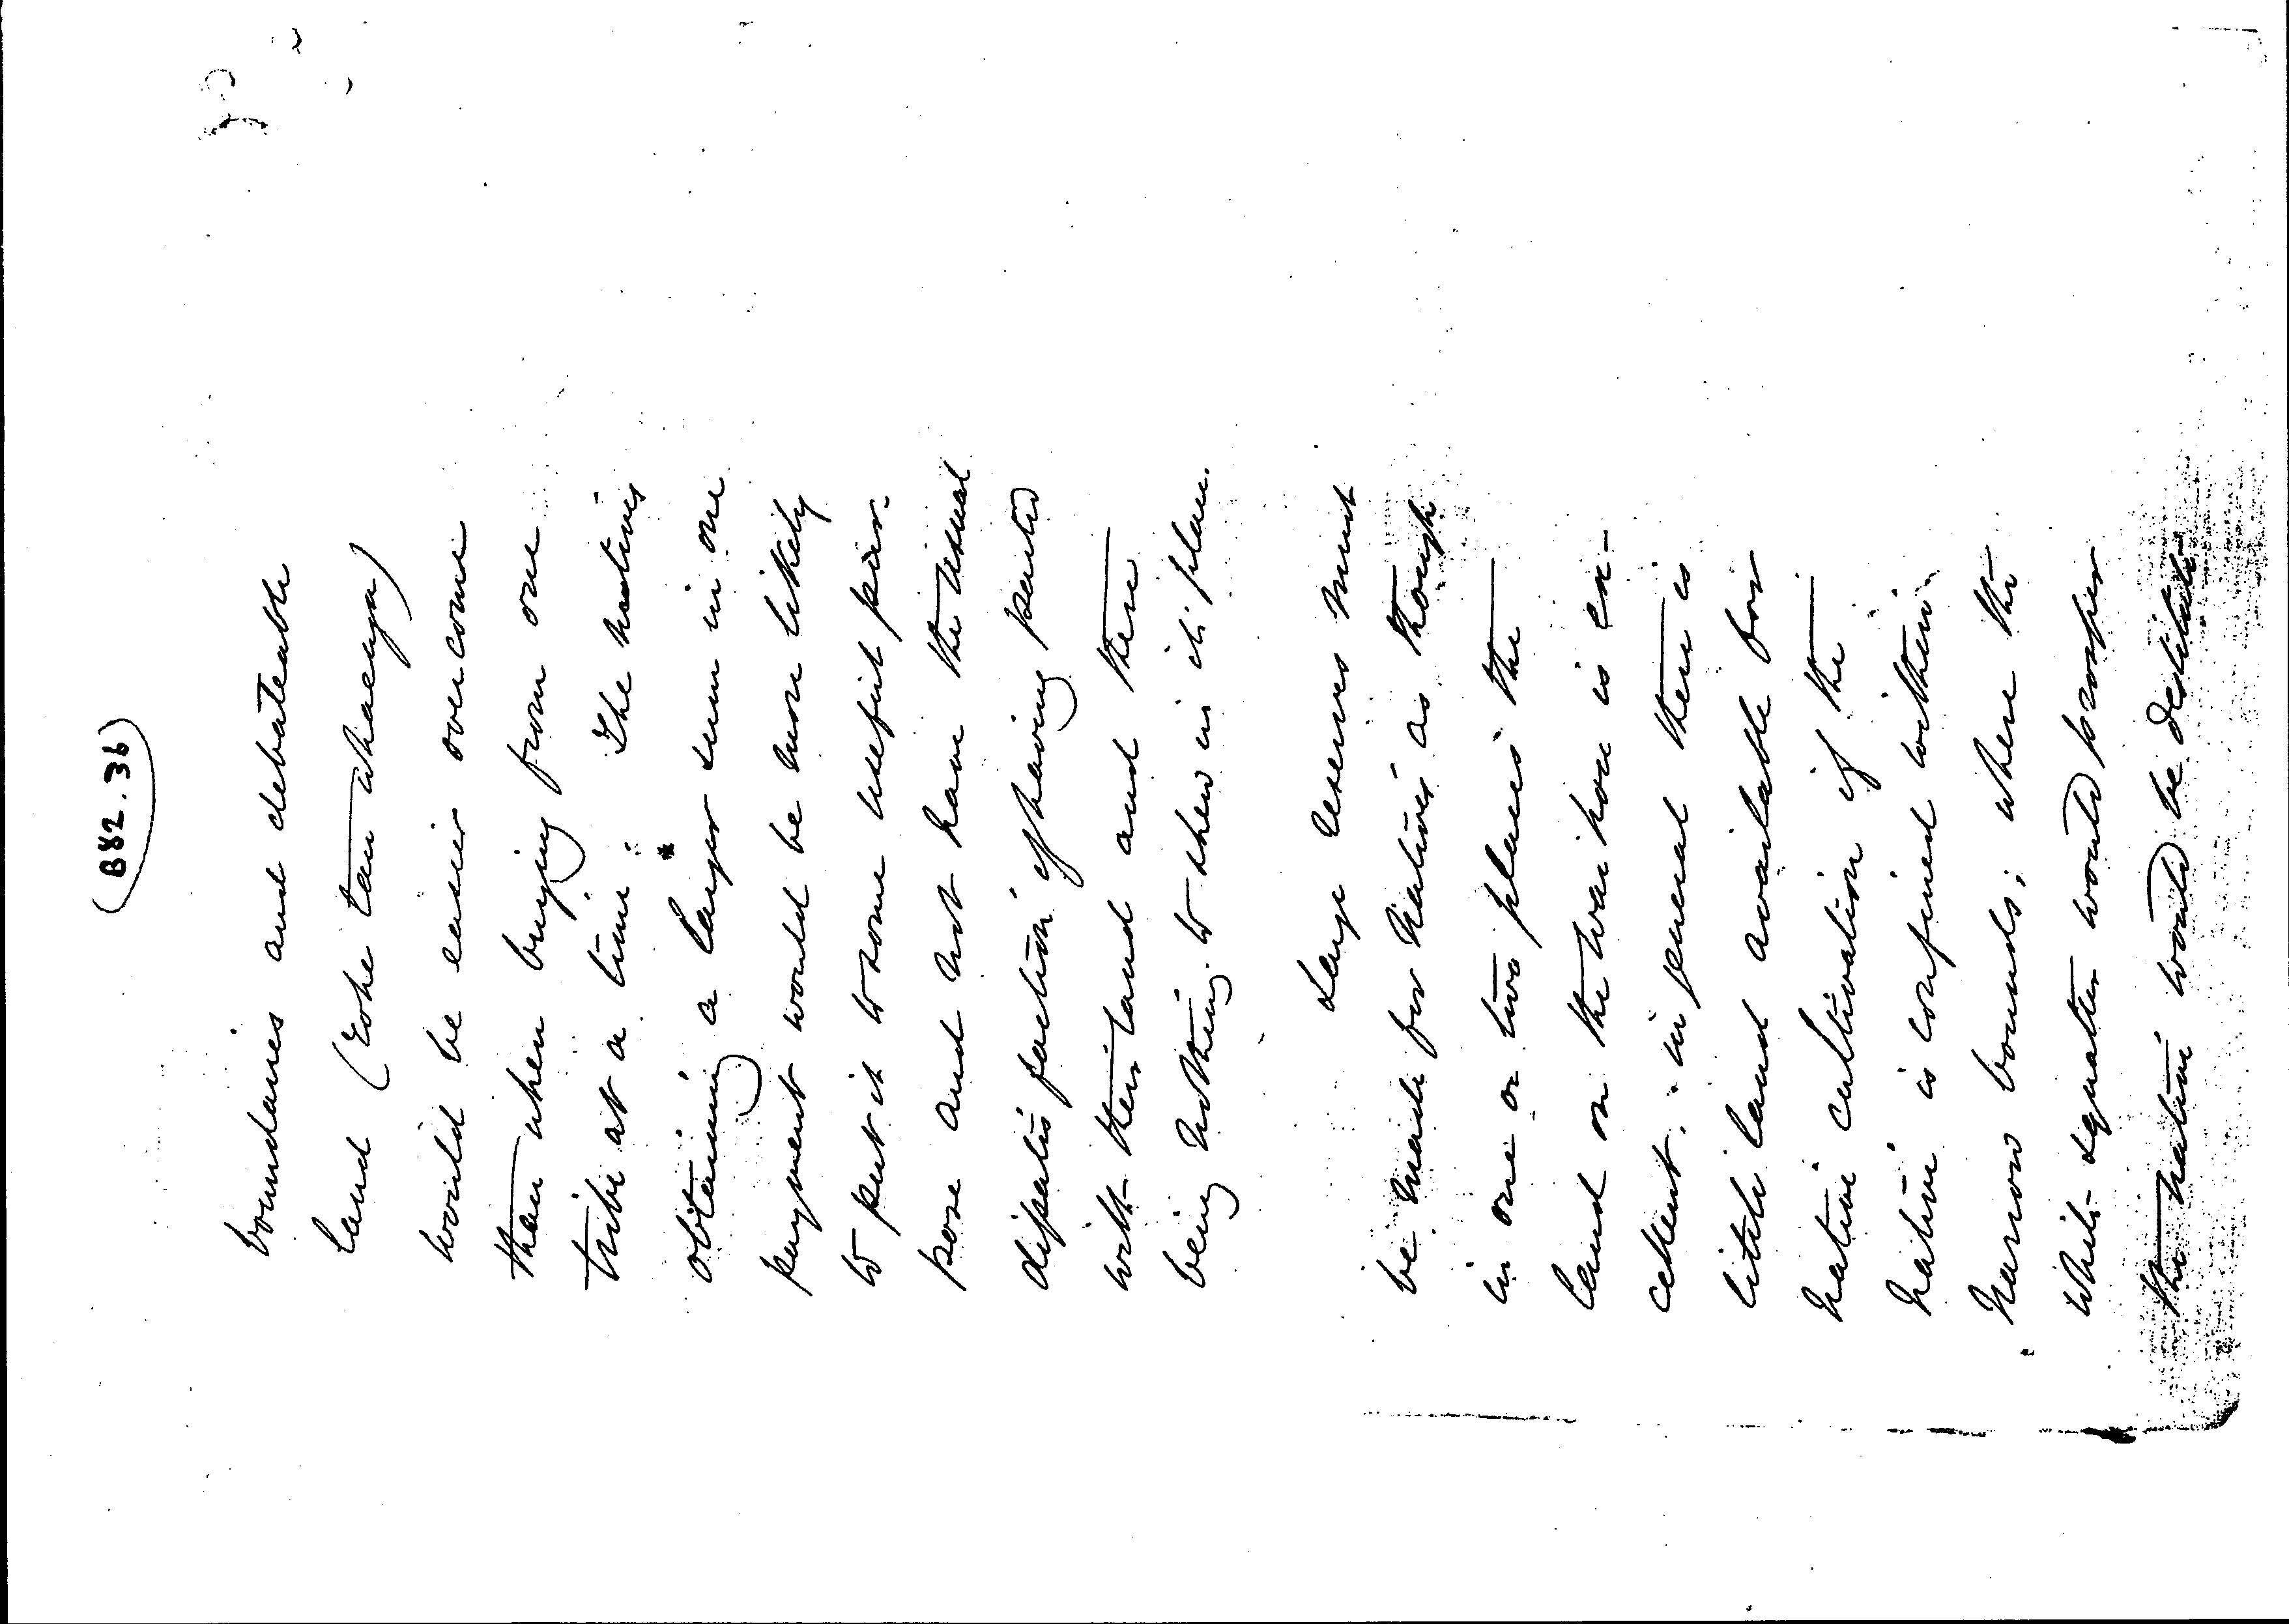 (B82.36)
boundaries and debateable
land (Eohe tau whaenga)
would be easier overcome
than when buying from one
tribe at a time. The natives
obtaining a larger sum in one
payment would be more likely
to put it to some useful pur-
pose and not have the usual
dissatisfaction of having parted
with their land and there
being nothing to shew in its place.
Large reserves must
be made for Natives as though
in one or two places the
land on the Wairoa is ex-
cellent, in general there is
little land available for
native cultivation if the
native is confined within
narrow bounds; where the
white squatter would prosper
the native would be destitute